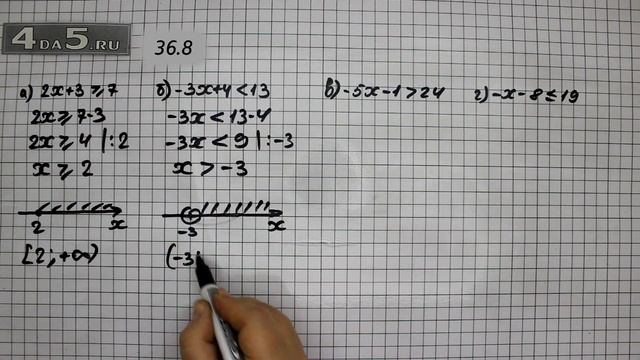 4DA5.RU
36.8
а) 2x+3 ⩾ 7
2x ⩾ 7-3
2x ⩾ 4 |:2
x ⩾ 2
2 x
[2; +∞)
б) -3x+4 < 13
-3x < 13-4
-3x < 9 |:-3
x > -3
-3 x
(-3
в) -5x-1 > 24
г) -x-8 ≤ 19